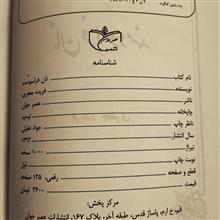 رده بندی کنگره:
شناسنامه
نام کتاب نان فراموشت
نویسنده فریده جعفری
ناشر عصر جوان
چاپخانه
ناظر چاپ جواد عقیلی
سال انتشار ۱۳۹۳
تیراژ ۱۰۰۰ نسخه
نوبت چاپ اول
قطع و صفحه رقعی، ۱۲۵ صفحه
قیمت ۳۶۰۰ تومان
مرکز پخش:
قم، خ ارم، پاساژ قدس، طبقه آخر، پلاک ۱۶۷، انتشارات عصر جوان